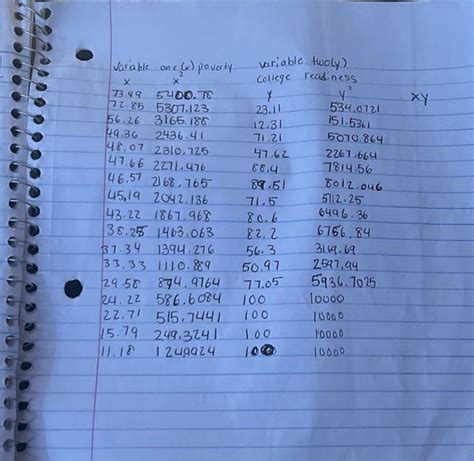 variable one (x) poverty variable two(y)
x x² college readiness
73.49 5400.78 y y² xy
72.85 5307.123 23.11 534.0721
56.26 3165.188 12.31 151.5361
49.36 2436.41 71.21 5070.864
48.07 2310.725 47.62 2267.664
47.66 2271.476 88.4 7814.56
46.57 2168.765 89.51 8012.046
45.19 2042.136 71.5 5112.25
43.22 1867.968 80.6 6496.36
38.25 1463.063 82.2 6756.84
37.34 1394.276 56.3 3169.69
33.33 1110.889 50.97 2597.94
29.58 874.9764 77.05 5936.7025
24.22 586.6084 100 10000
22.71 515.7441 100 10000
15.79 249.3241 100 10000
11.18 124.9924 100 10000